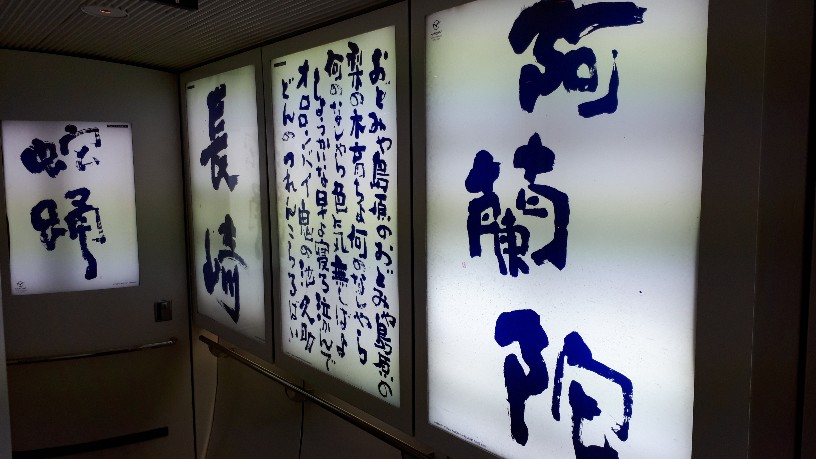 阿蘭陀
おどみや島原のおどみや島原の
梨の木育ちよ何のなしやら
何のなしやら色気無しばよ
しょうかいな早よ寝ろ泣かんで
オロロンバイ鬼の池久助
どんのつれんこらるばい
長崎
蛇踊